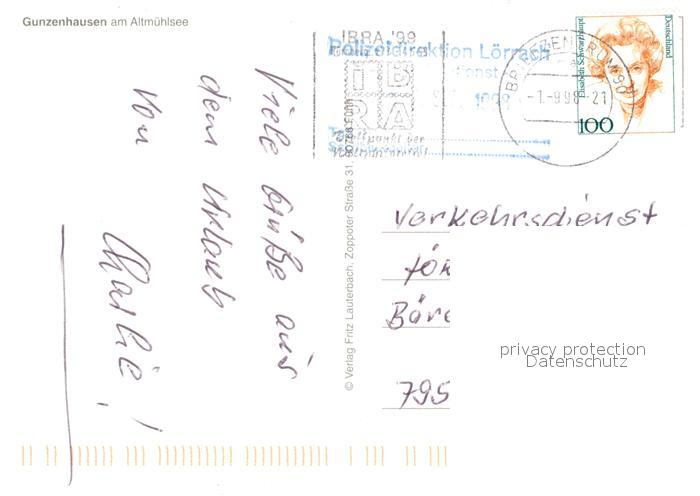 Gunzenhausen am Altmühlsee
Viele Grüße aus
dem Urlaub
von
Charlie!
© Verlag Fritz Lauterbach, Zoppoter Straße 31, 90766 Fürth
IBRA '99
IB
RA
Treffpunkt der
Polizeidirektion Lörrach
1998
-1.-9.98-21
Elisabeth Schwarzhaupt
Deutschland
100
Verkehrsdienst
Lör
Bäre
795
privacy protection
Datenschutz